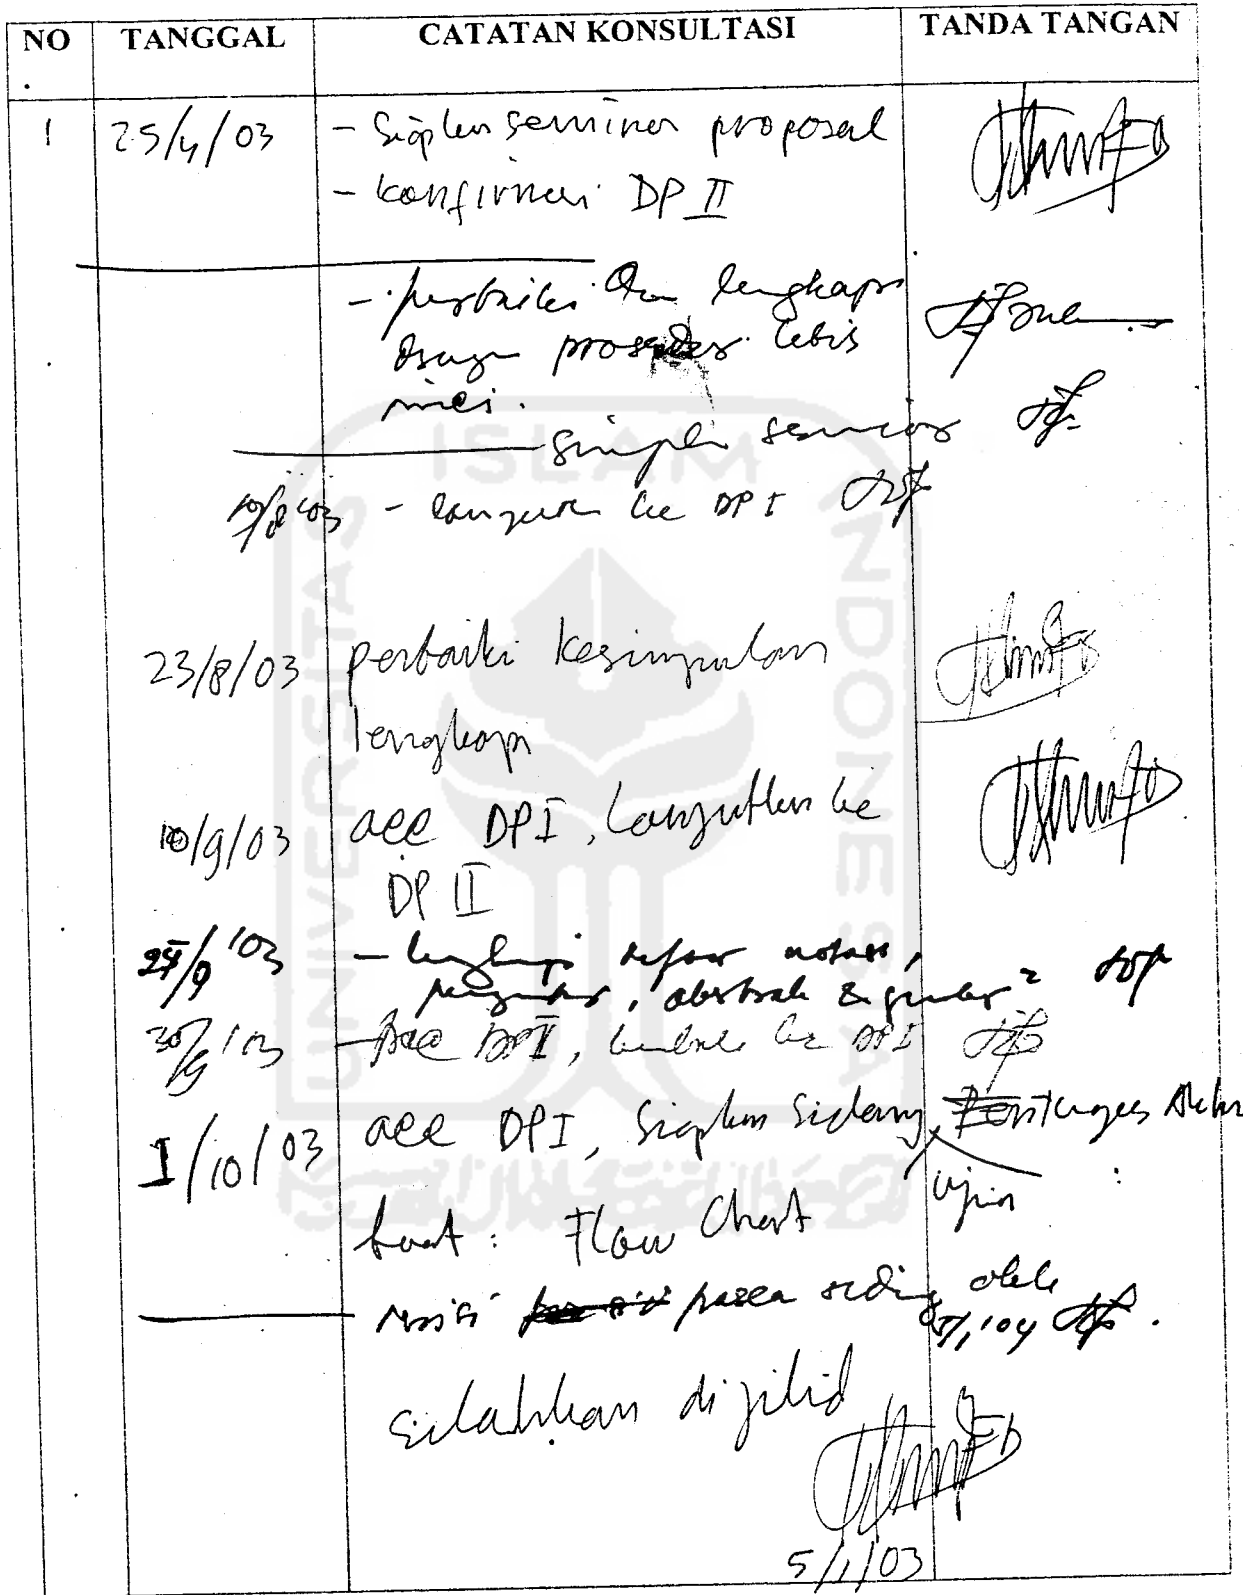 NO TANGGAL CATATAN KONSULTASI TANDA TANGAN
1 25/4/03 - Siapkan seminar proposal
- konfirmasi DP II
- perbaiki dan lengkapi
bagan prosedur lebih
rinci.
seminar
- lanjutkan ke DP I
23/8/03 perbaiki kesimpulan
lengkapi
10/9/03 acc DPI, Lanjutkan ke
DP II
'03 - lengkapi daftar notasi,
pengantar, abstrak & gambar2
30/9 '03 - Acc DPII, kembali ke DPI
1/10/03 acc DPI, Siapkan Sidang Tugas Akhir
ujian
buat : Flow Chart
Revisi pasca siding oleh
5/1 '04
silahkan dijilid
5/1/03
UNIVERSITAS ISLAM INDONESIA